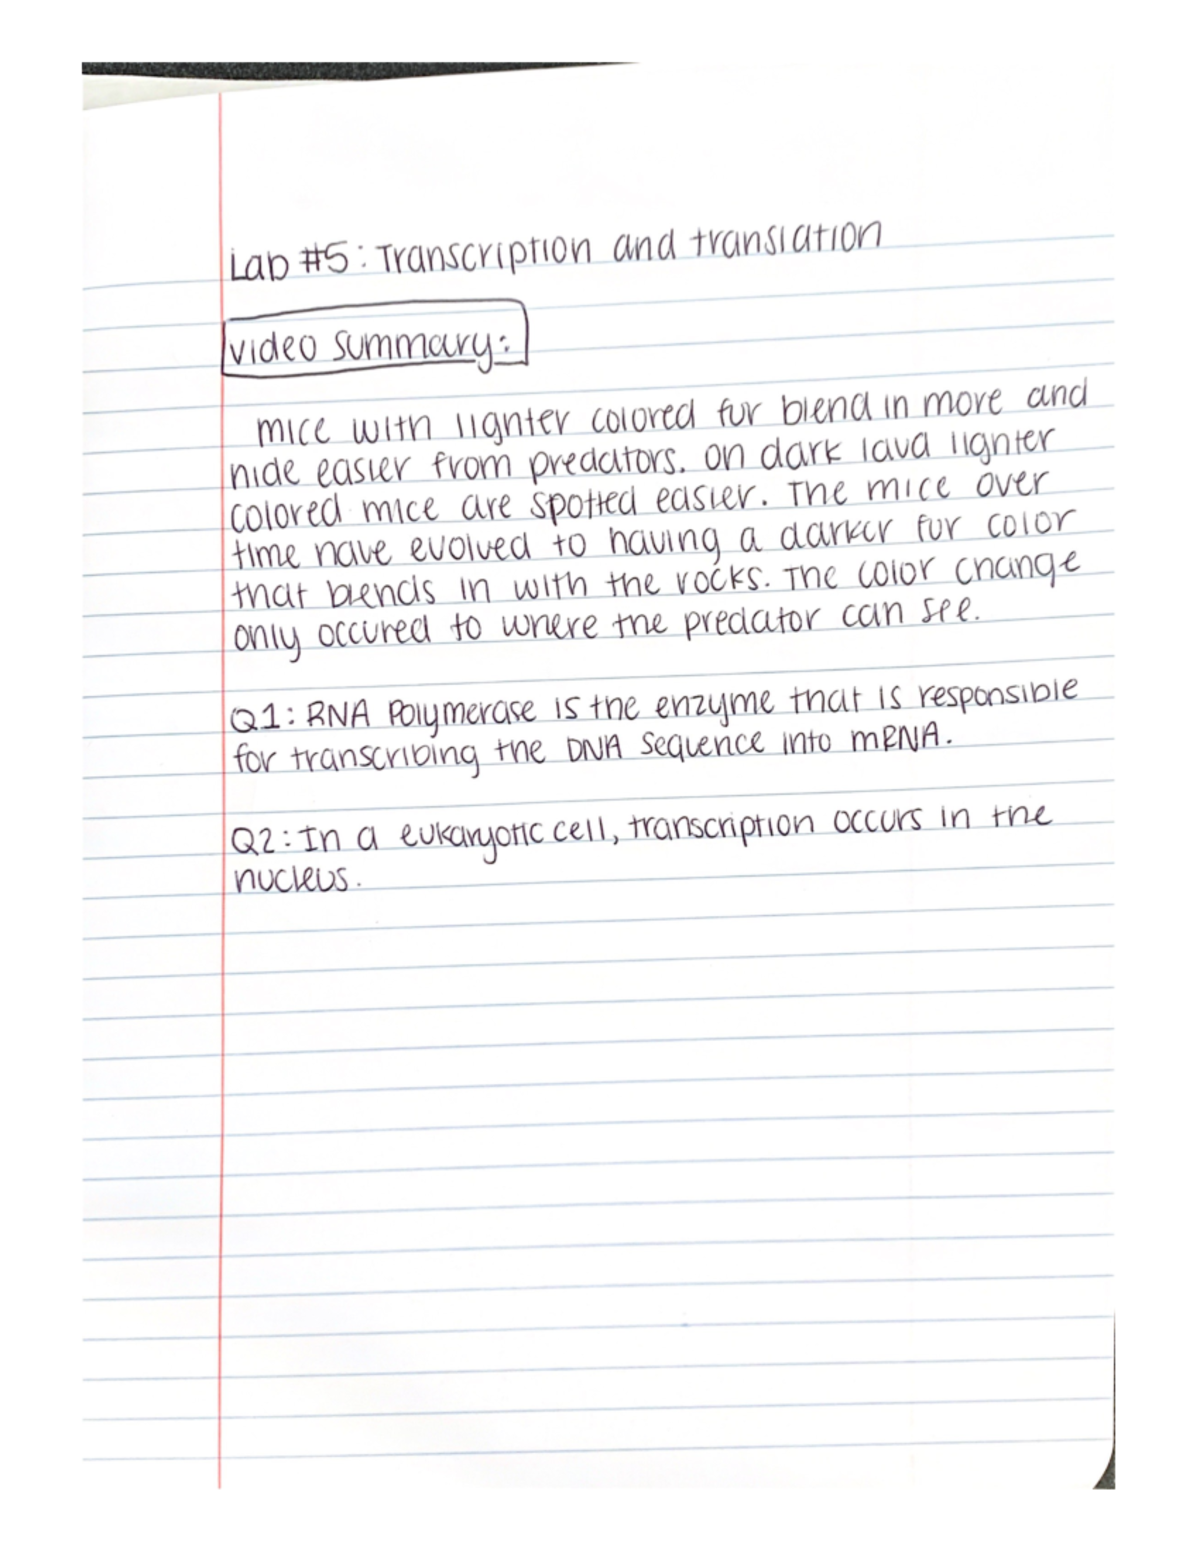 Lab #5: Transcription and translation
Video Summary:
mice with lighter colored fur blend in more and
hide easier from predators. On dark lava lighter
colored mice are spotted easier. The mice over
time have evolved to having a darker fur color
that blends in with the rocks. The color change
only occured to where the predator can see.
Q1: RNA Polymerase is the enzyme that is responsible
for transcribing the DNA sequence into mRNA.
Q2: In a eukaryotic cell, transcription occurs in the
nucleus.